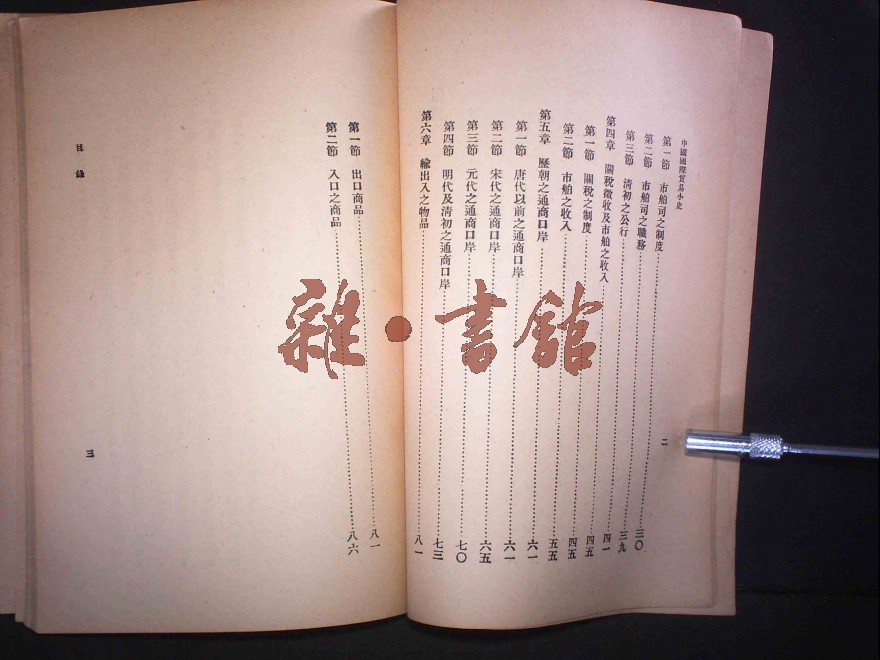 中國國際貿易小史
二
第一節 市舶司之制度……三〇
第二節 市舶司之職務……三九
第三節 清初之公行……四一
第四章 關稅徵收及市舶之收入……四五
第一節 關稅之制度……四五
第二節 市舶之收入……五五
第五章 歷朝之通商口岸……六一
第一節 唐代以前之通商口岸……六一
第二節 宋代之通商口岸……六五
第三節 元代之通商口岸……七〇
第四節 明代及清初之通商口岸……七三
第六章 輸出入之物品……八一
第一節 出口商品……八一
第二節 入口之商品……八六
目錄
三
雜·書館